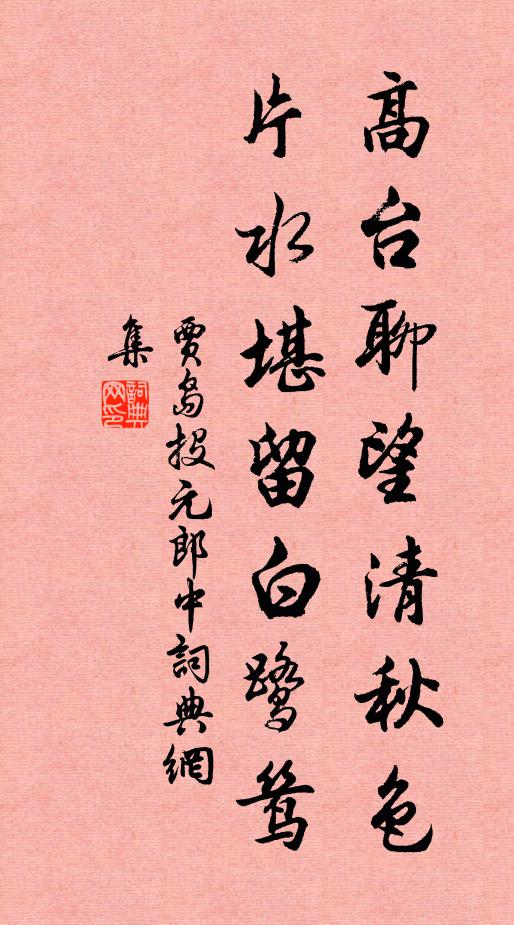 高台聊望清秋色
片水堪留白鹭鸶
賈島投元郎中詞典網
集
詞典网印